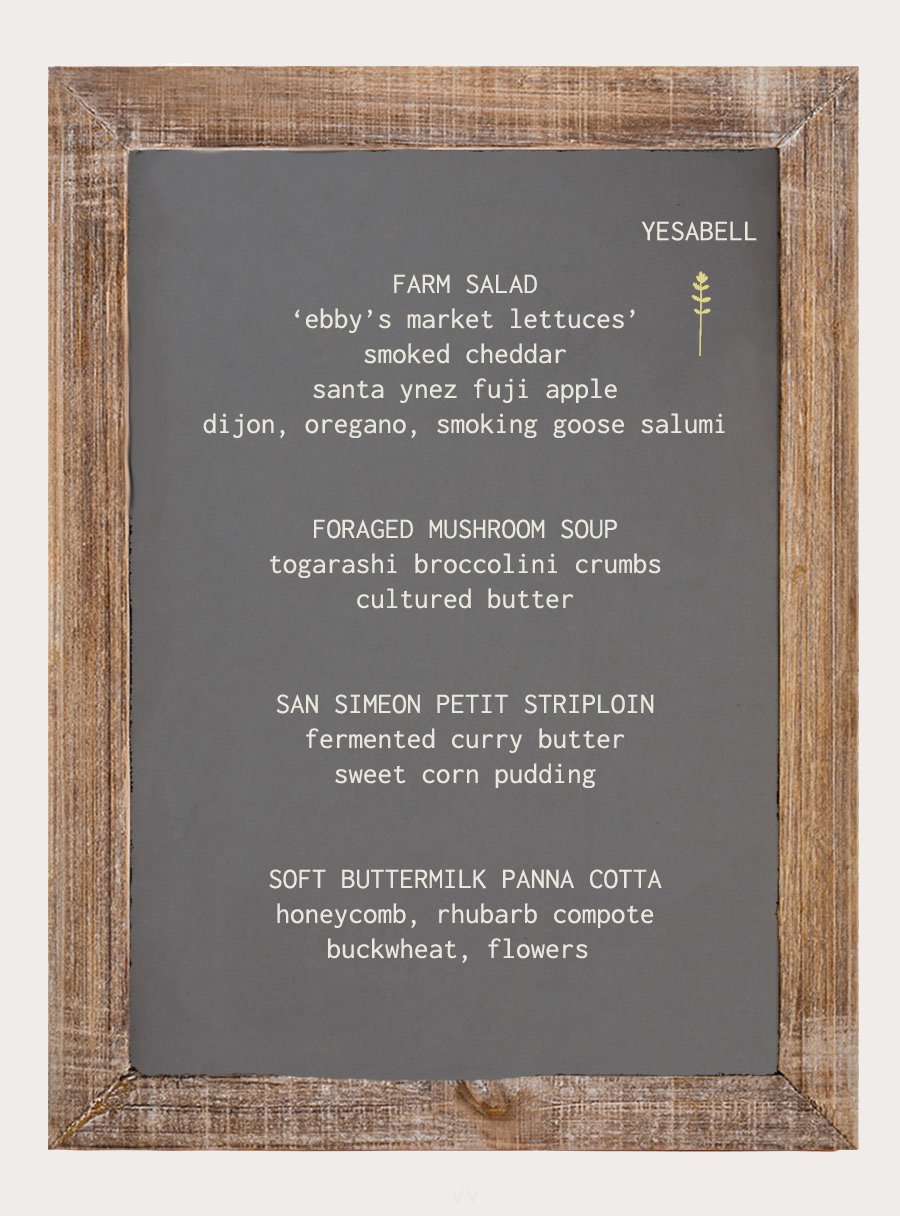 YESABELL
FARM SALAD
‘ebby’s market lettuces’
smoked cheddar
santa ynez fuji apple
dijon, oregano, smoking goose salumi
FORAGED MUSHROOM SOUP
togarashi broccolini crumbs
cultured butter
SAN SIMEON PETIT STRIPLOIN
fermented curry butter
sweet corn pudding
SOFT BUTTERMILK PANNA COTTA
honeycomb, rhubarb compote
buckwheat, flowers
VV